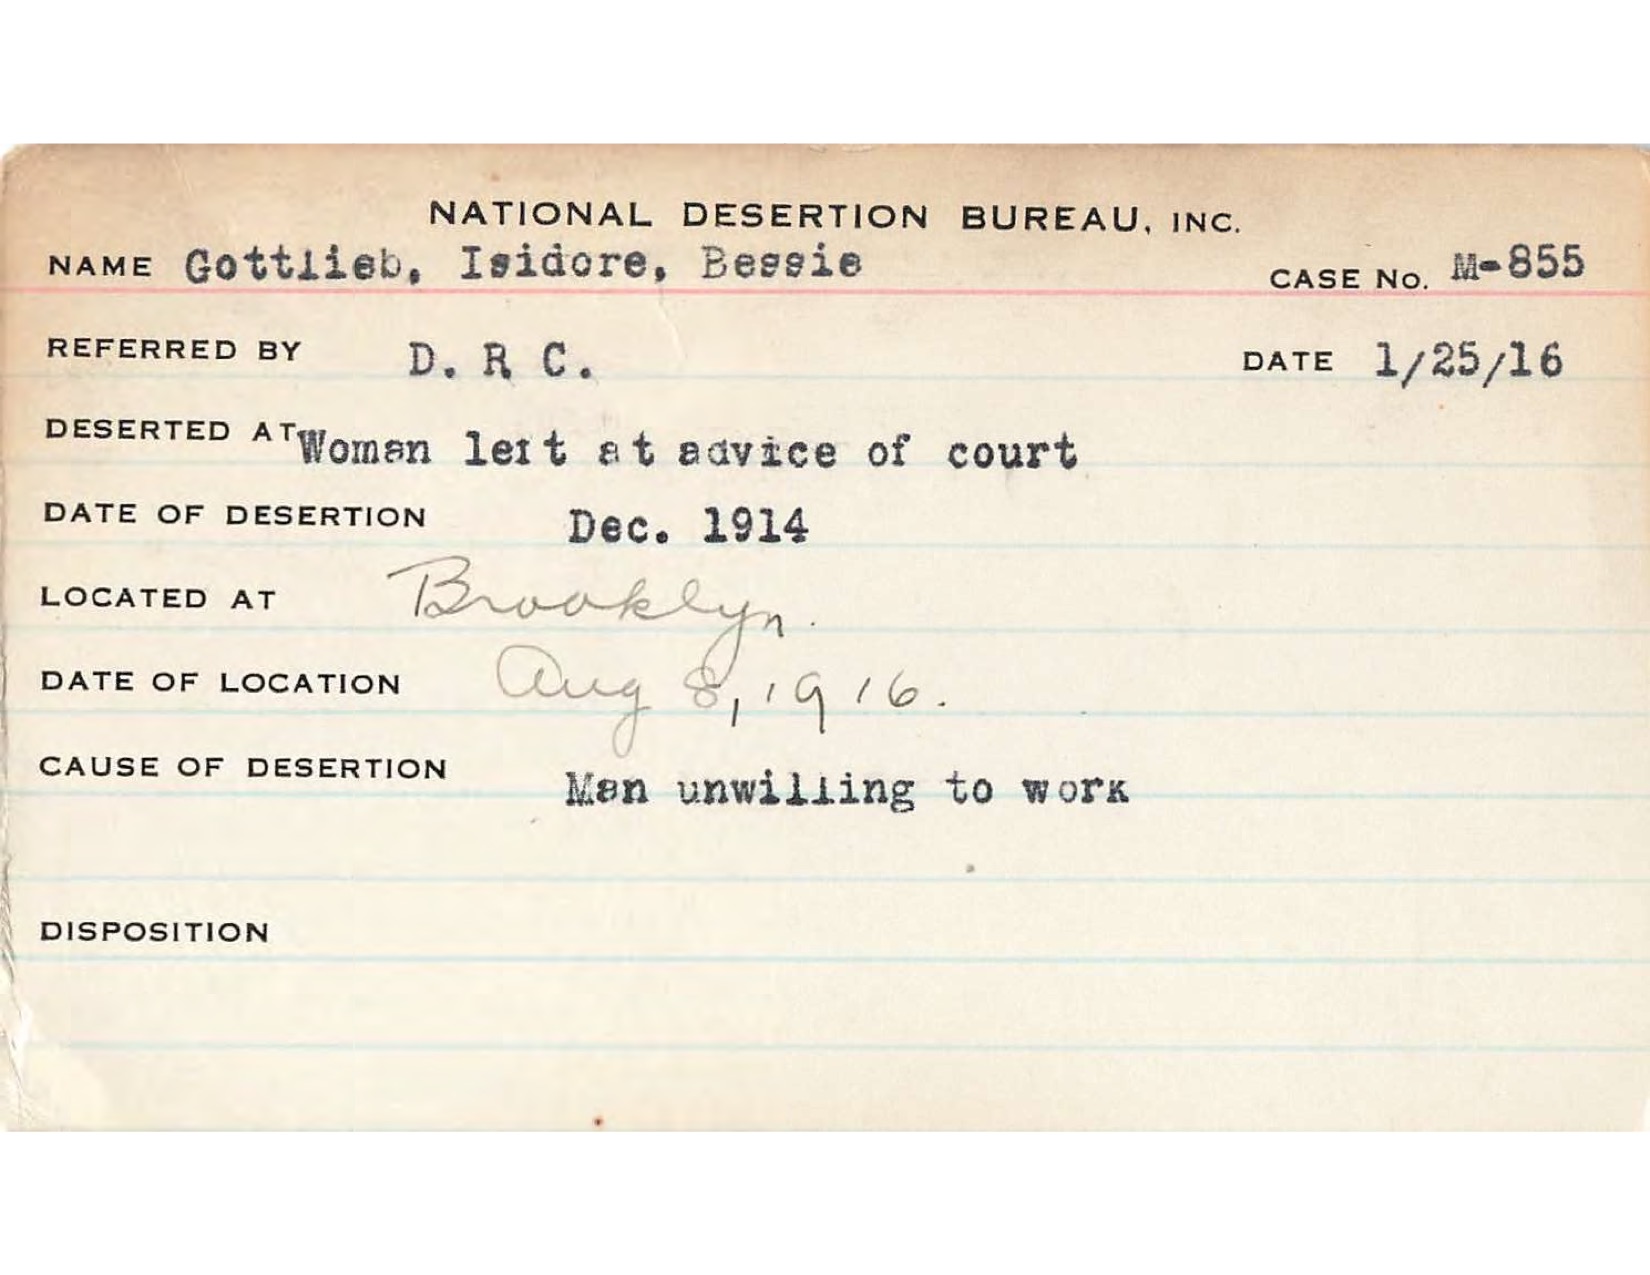 NATIONAL DESERTION BUREAU, INC.
NAME Gottlieb, Isidore, Bessie CASE No. M-855
REFERRED BY D. R C. DATE 1/25/16
DESERTED AT Woman left at advice of court
DATE OF DESERTION Dec. 1914
LOCATED AT Brooklyn.
DATE OF LOCATION Aug 8, 1916.
CAUSE OF DESERTION Man unwilling to work
DISPOSITION